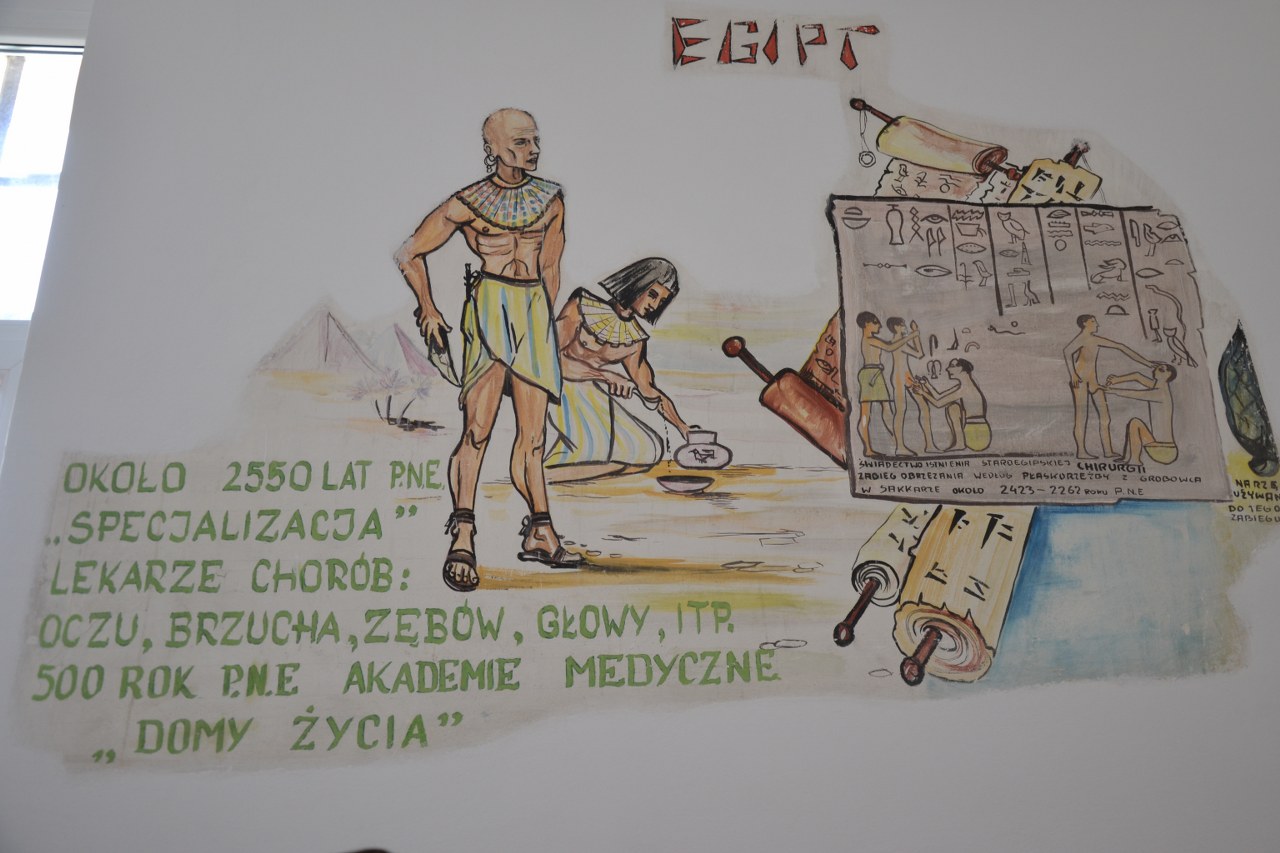 EGIPT
OKOŁO 2550 LAT P.N.E.
„SPECJALIZACJA”
LEKARZE CHORÓB:
OCZU, BRZUCHA, ZĘBÓW, GŁOWY, ITP.
500 ROK P.N.E AKADEMIE MEDYCZNE
„DOMY ŻYCIA”
ŚWIADECTWO ISTNIENIA STAROEGIPSKIEJ CHIRURGII
ZABIEG OBRZEZANIA WEDŁUG PŁASKORZEŹBY Z GROBOWCA
W SAKKARZE OKOŁO 2423-2262 ROKU P.N.E
NARZĘ
UŻYWAN
DO TEGO
ZABIEGU